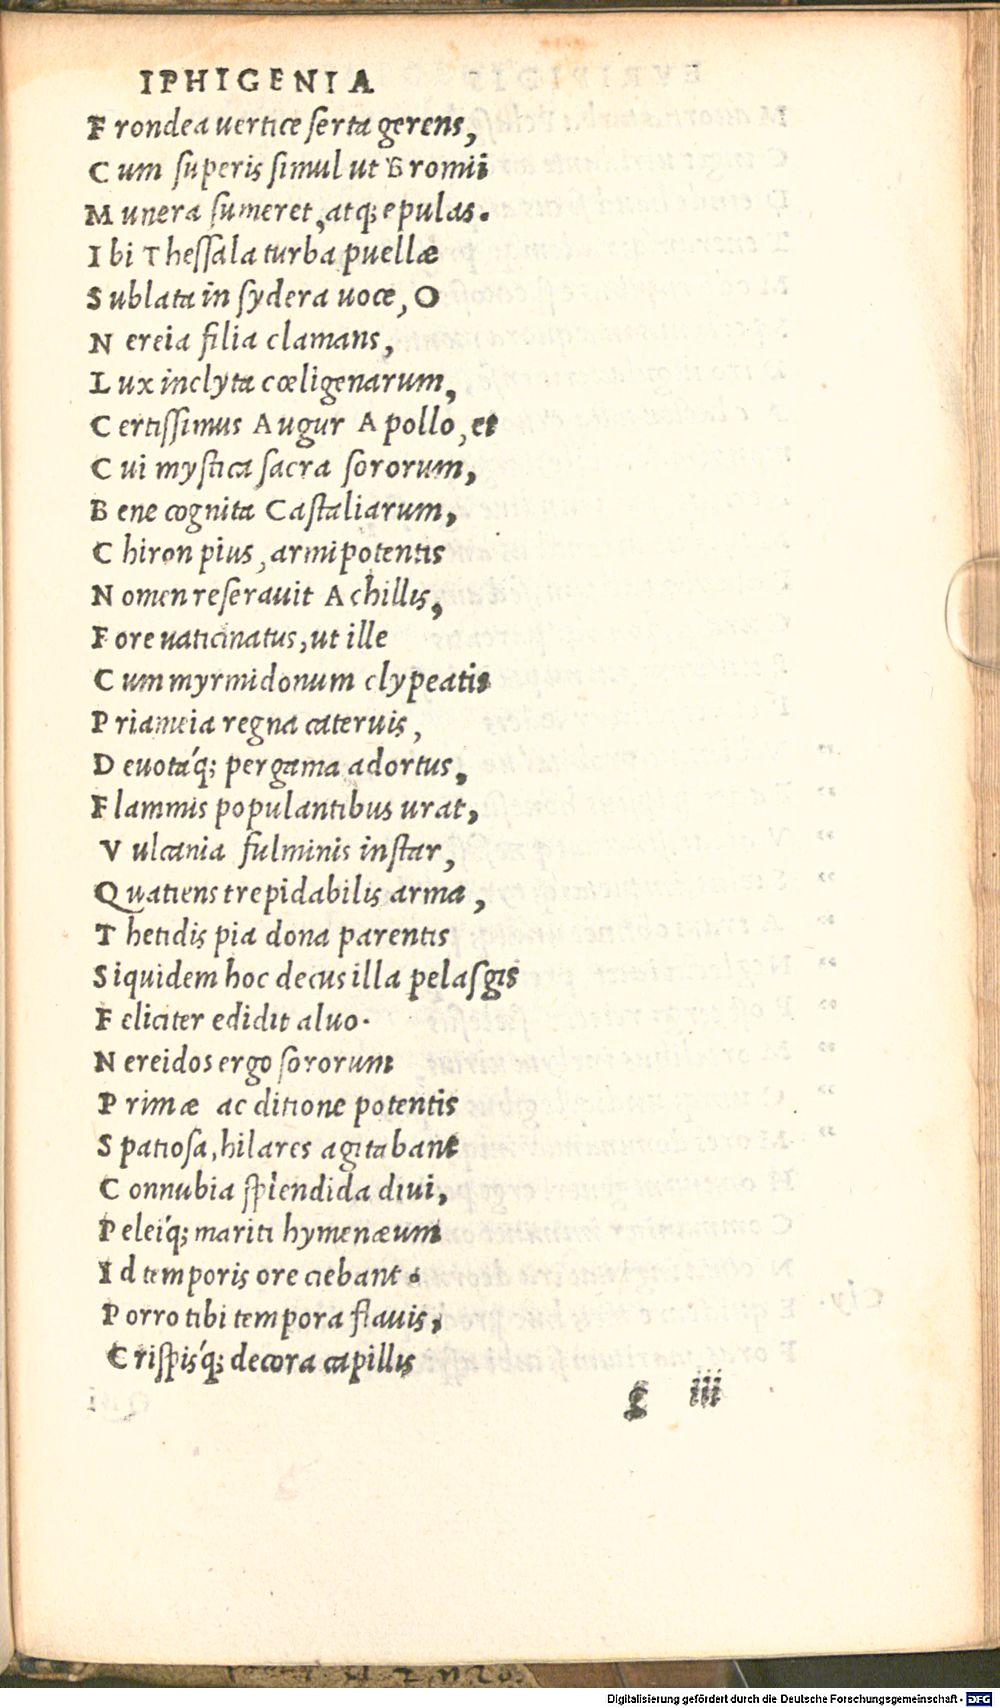 IPHIGENIA
Frondea uertice serta gerens,
Cum superis simul ut Bromii
Munera sumeret, atq; epulas.
Ibi Thessala turba puellæ
Sublata in sydera uoce, O
Nereia filia clamans,
Lux inclyta cœligenarum,
Certissimus Augur Apollo, et
Cui mystica sacra sororum,
Bene cognita Castaliarum,
Chiron pius, armipotentis
Nomen reserauit Achillis,
Fore uaticinatus, ut ille
Cum myrmidonum clypeatis
Priameia regna cateruis,
Deuotáq; pergama adortus,
Flammis populantibus urat,
Vulcania fulminis instar,
Quatiens trepidabilis arma,
Thetidis pia dona parentis
Siquidem hoc decus illa pelasgis
Feliciter edidit aluo.
Nereidos ergo sororum
Primæ ac ditione potentis
Spatiosa, hilares agitabant
Connubia splendida diui,
Peleiq́; mariti hymenæum
Id temporis ore ciebant.
Porro tibi tempora flauis,
Crispisq́; decora capillis
g iii
Digitalisierung gefördert durch die Deutsche Forschungsgemeinschaft - DFG